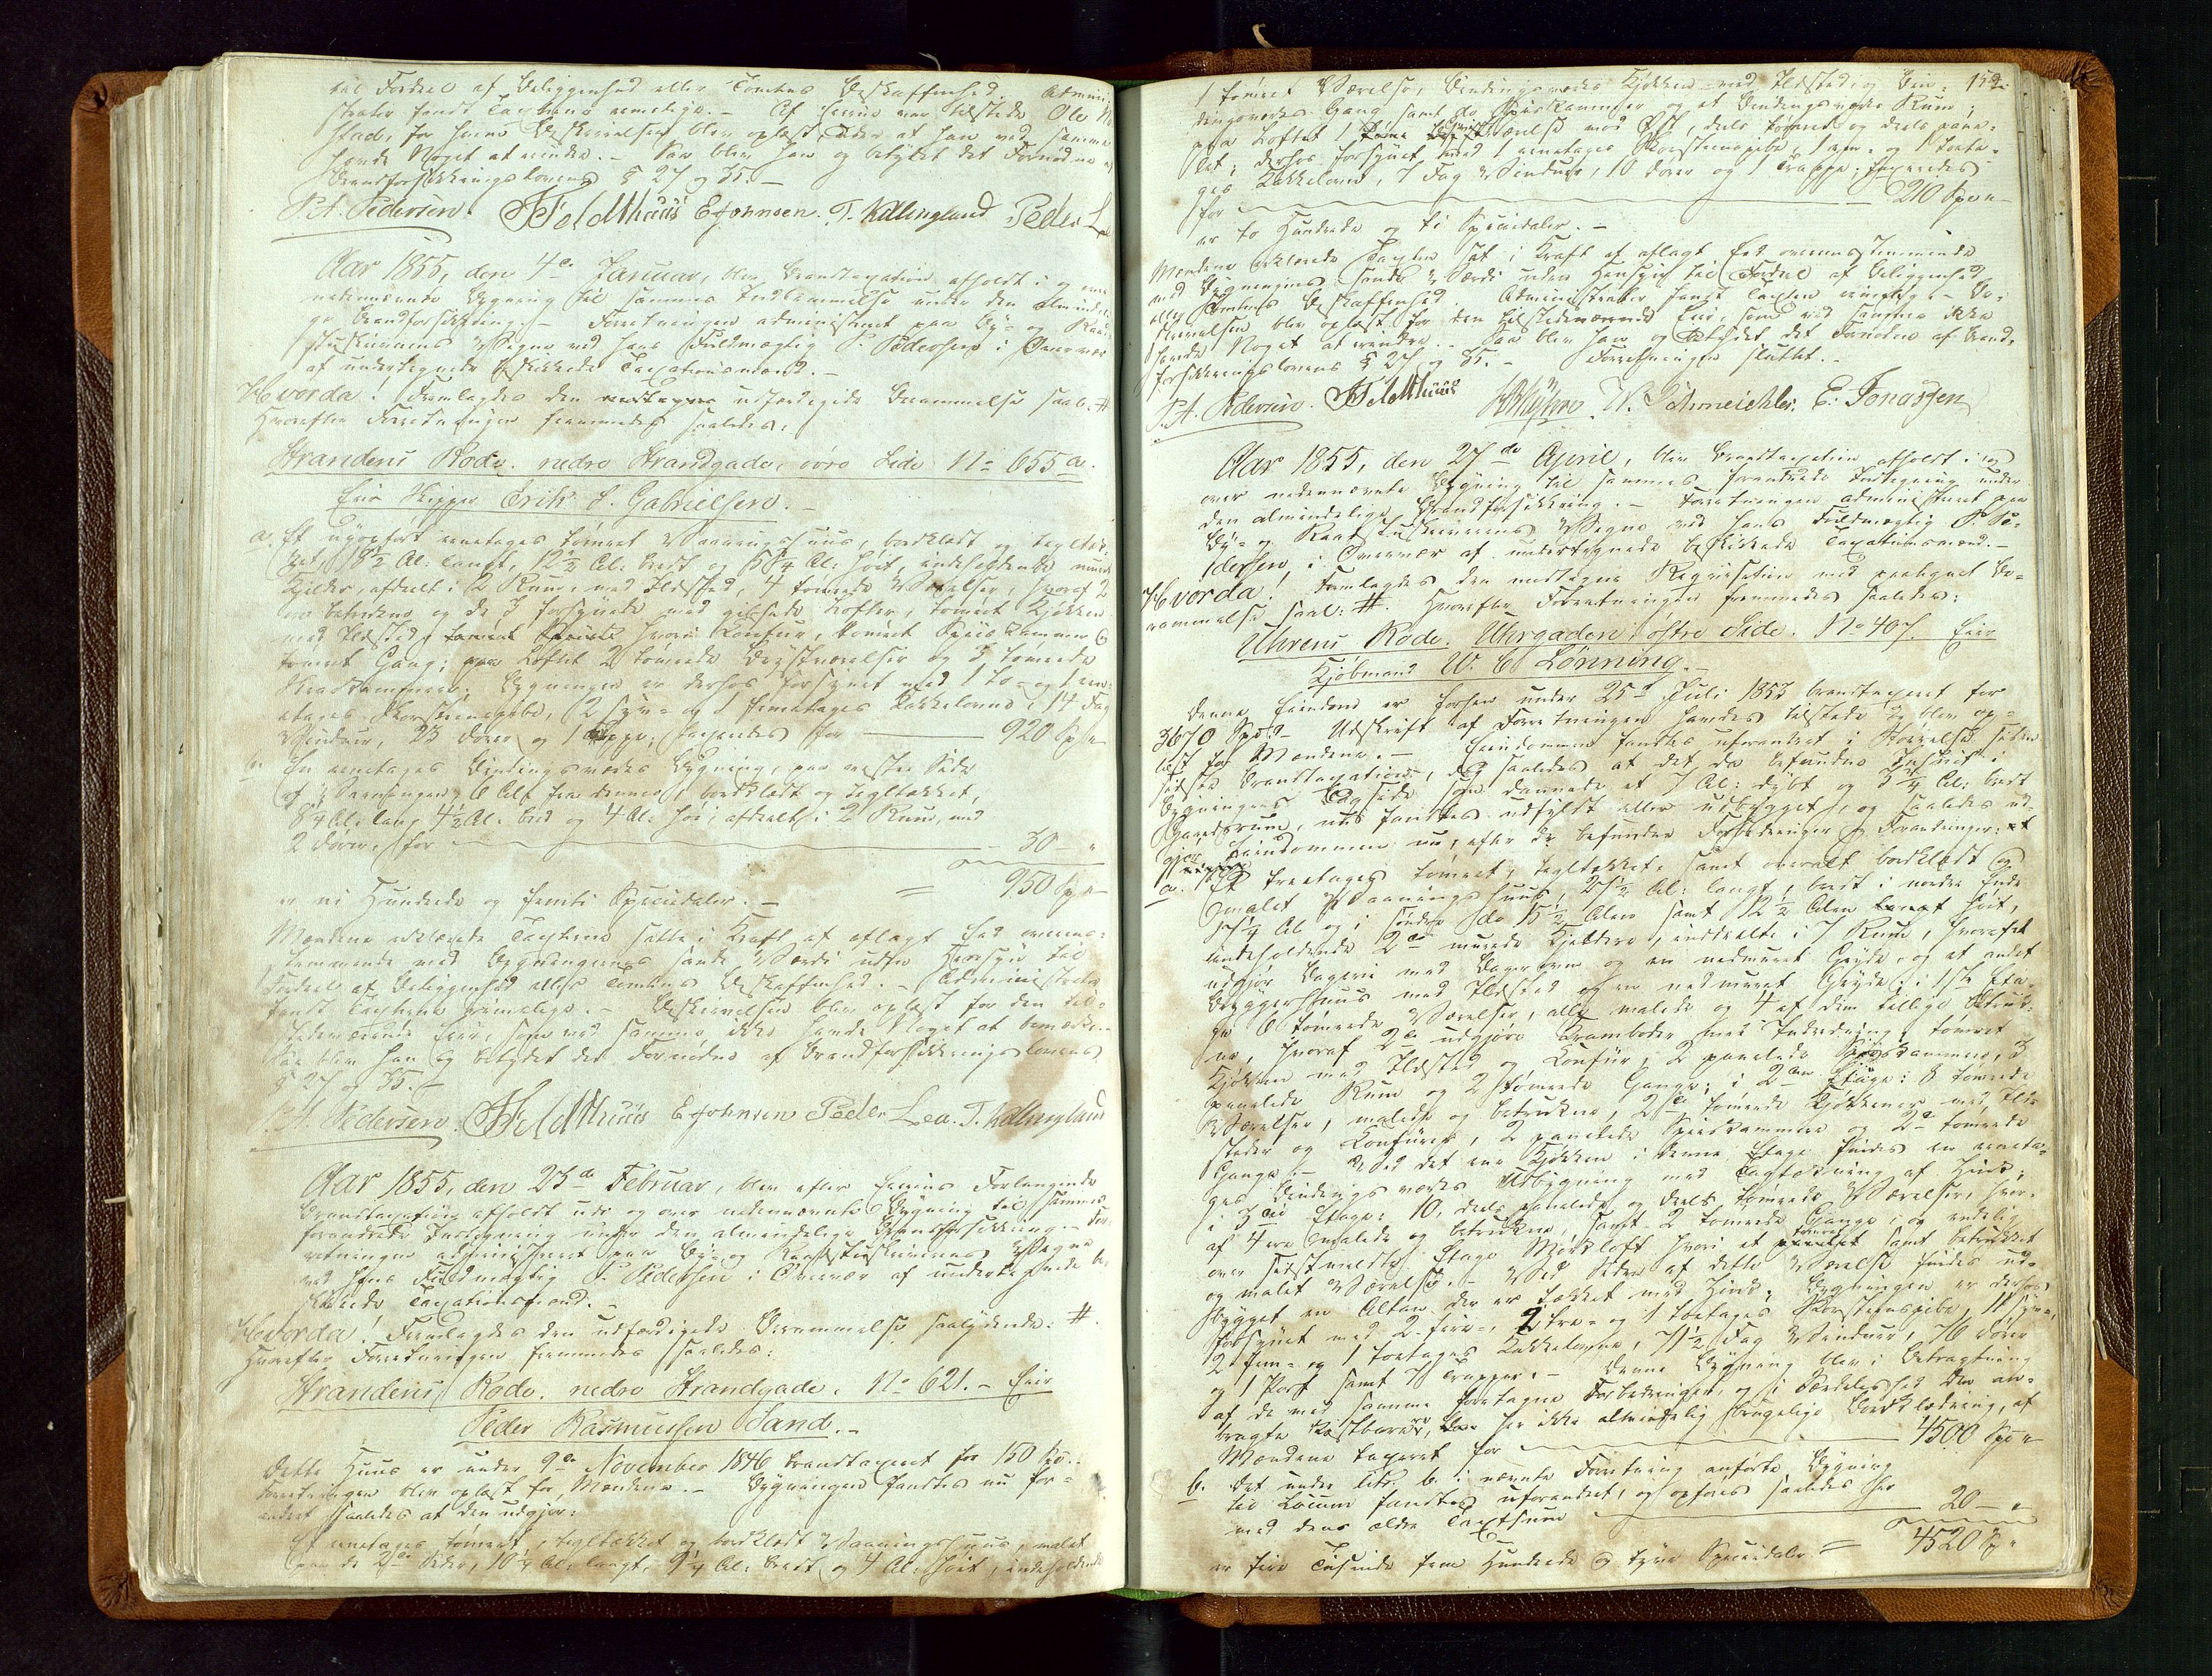 til Fordeel af Beliggenhed eller Tomtens Beskaffenhed. Admini-
strator fandt Taxterne rimelige. - Af Eierne var tilstede Ole
stad, for hvem Beskrivelsen blev oplæst uden at han ved samme
havde Noget at erindre. - Saa blev han og betydet det Fornødne af
Brandforsikkringslovens § 27 og 35. -
P. A. Pedersen. Feldthuus E Johnsen. T. Kallingland Peder L
Aar 1855, den 4de Januar, blev Brandtaxation afholdt i og over
nedennævnte Bygning til sammes Indlemmelse under den almindeli-
ge Brandforsikkring. - Forretningen administreret paa By- og Raad-
stuskriverens Vegne ved hans Fuldmægtig P. Pedersen i Overvær
af undertegnede beskikkede Taxationsmænd. -
Hvorda! Fremlagdes den udfærdigede Berammelse saal: #
Hvorefter Forretningen fremmedes saaledes:
Strandens Rode. nedre Strandgade. øvre Side No 655 a.
Eier Skipper Erik S. Gabrielsen. -
a. Et nyopført eenetages tømret Vaaningshuus, bordklædt og tegltæk-
ket, 18½ Al: langt, 12½ Al: bredt og 5¾ Al: høit, indeholdende muret
Kjelder, afdeelt i 2 Rum, med Ildsted, 4 tømrede Værelser, hvoraf 2
ere betrukne og de 3 forsynede med gibsede Lofter, tømret Kjøkken
med Ildsted, hvori Komfur, tømret Spiiskammer &
tømret Gang; paa Loftet 2 tømrede Qvistværelser og 3 tømrede
Bygningen er derhos forsynet med 1 to- og 1 een-
etages Skorsteenspibe, 2 syv- og 1 femetages Kakkelovne, 14 Fag
Vinduer, 23 Dører og 1 Trappe; taxeredes for 920 Spd -
b. En eenetages Bindingsværks Bygning, paa vestre Side
af Vaaningen, 6 Al: fra denne, bordklædt og tegltækket,
8¼ Al: lang 4½ Al: bred og 4 Al: høi, afdeelt i 2 Rum, med
2 Dører, for 30 - "
= 950 Spd -
er ni Hundrede og femti Speciedaler. -
Mændene erklærede Taxterne satte i Kraft af aflagt Eed overeens-
stemmende med Bygningernes sande Værdi uden Hensyn til
Fordeel af Beliggenhed eller Tomtens Beskaffenhed. - Administrator
fandt Taxterne rimelige. - Beskrivelsen blev oplæst for den til-
stedeværende Eier, som ved samme ikke havde Noget at bemærke. -
Saa blev han og betydet det Fornødne af Brandforsikkringslovens
§ 27 og 35. -
P. A. Pedersen. Feldthuus E Johnsen Peder Lea. T. Kallingland
Aar 1855, den 23de Februar, blev efter Eierens Forlangende
Brandtaxation afholdt ude og over nedennævnte Bygning til sammes
forandrede Indtegning under den almindelige Brandforsikkring. - For-
retningen administreret paa By- og Raadstuskriverens Vegne
ved hans Fuldmægtig P. Pedersen i Overvær af undertegnede be-
skikkede Taxationsmænd. -
Hvorda! Fremlagdes den udfærdigede Berammelse saalydende: #.
Hvorefter Forretningen fremmedes saaledes:
Strandens Rode. nedre Strandgade. No 621. - Eier
Peder Rasmussen Sand. -
Dette Huus er under 9de November 1846 brandtaxeret for 150 Spd. -
Forretningen blev oplæst for Mændene. - Bygningen fandtes nu for-
andret saaledes at den udgjør:
Et eenetages tømret, tegltækket og bordklædt Vaaningshuus, malet
paa de 2de Sider, 10¼ Al: langt, 9¼ Al: bredt og 4 Al: høit, indeholdende
1 tømret Værelse, Bindingsværks Kjøkken med Ildsted, og Bin- 152.
dingsværks Gang samt do Spiiskammer og et Bindingsværks Rum;
paa Loftet 1 Værelse mod Øst, deels tømret og deels pane-
let; derhos forsynet med 1 eenetages Skorsteenspibe, 1 een- og 1 toeta-
ges Kakkelovn, 7 Fag Vinduer, 10 Dører og 1 Trappe; taxeredes
for 210 Spd " -
er to Hundrede og ti Speciedaler. -
Mændene erklærede Taxten sat i Kraft af aflagt Eed overeensstemmende
med Bygningens sande Værdi uden Hensyn til Fordeel af Beliggenhed
eller Tomtens Beskaffenhed. Administrator fandt Taxten rimelig. - Be-
skrivelsen blev oplæst for den tilstedeværende Eier, som ved samme ikke
havde Noget at erindre. - Saa blev han og betydet det Fornødne af Brand-
forsikkringslovens § 27 og 35. - Forretningen sluttet. -
P. A. Pedersen. Feldthuus W. Schmeichler. E. Jonassen
Aar 1855, den 27de April, blev Brandtaxation afholdt i og
over nedennævnte Bygning til sammes forandrede Indtegning under
den almindelige Brandforsikkring. - Forretningen administreret paa
By- og Raadstuskriverens Vegne ved hans Fuldmægtig P. Pe-
dersen, i Overvær af undertegnede beskikkede Taxationsmænd. -
Hvorda! Fremlagdes den modtagne Reqvisition med paategnet Be-
rammelse saal: #. Hvorefter Forretningen fremmedes saaledes:
Uhrens Rode. Uhrgaden østre Side. No 407. Eier
Kjøbmand W. C. Lønning. -
Denne Eiendom er forhen under 25de Juli 1853 brandtaxeret for
3670 Spd. - Udskrift af Forretningen havdes tilstede og blev op-
læst for Mændene. - Eiendommen fandtes uforandret i Størrelse siden
sidste Brandtaxation, dog saaledes at det da befundne Indsnit i
Bygningens Bagside som dannede et 7 Al: dybt og 3¼ Al: bredt
Gaardsrum, nu fandtes udfyldt eller udbygget, og saaledes ud-
gjør Eiendommen nu, efter de befundne Forbedringer og Forandringer:
a. Et treetages tømret, tegltækket, samt overalt bordklædt og
malet Vaaningshuus, 27½ Al: langt, bredt i nordre Ende
17¼ Al og i søndre do 15½ Alen samt 12½ Alen høit,
indeholdende 2de murede Kjeldere, inddeelte i 7 Rum, hvoraf et
udgjør Bageri med Bagerovn og en nedmuret Gryde, og et andet
Bryggerhuus med Ildsted og en nedmuret Gryde; i 1ste Eta-
ge 6 tømrede Værelser, alle malede og 4 af dem tillige betruk-
ne, hvoraf 2de udgjøre Kramboder med Indredning, tømret
Kjøkken med Ildsted og Komfur, 2 panelede Spiiskammere, 3
panelede Rum og 2 tømrede Gange; i 2den Etage: 8 tømrede
Værelser, malede og betrukne, 2de tømrede Kjøkkener med Ild-
steder og Komfurer, 2 panelede Spiiskammere og 2de tømrede
Gange. - Ved det ene Kjøkken i denne Etage findes en eeneta-
ges Bindingsværks Udbygning med Tagtækning af Zink;
i 3die Etage: 10, deels panelede og deels tømrede Værelser, hvor-
af 4re malede og betrukne, samt 2 tømrede Gange, og endelig
over sidstmeldte Etage Mørkloft hvori et tømret samt betrukket
og malet Værelse. - Ved Siden af dette Værelse findes ud-
bygget en Altan der er tækket med Zink; Bygningen er derhos
forsynet med 2 fire-, 2 tre- og 1 toetages Skorsteenspibe, 11 syv-,
2 fem- og 1 toetages Kakkelovne, 71½ Fag Vinduer, 76 Dører
og 1 Port samt 7 Trapper. - Denne Bygning blev i Betragtning
af de med samme foretagne Forbedringer, og i Særdeleshed den an-
bragte kostbarere, her ikke almindelig brugelige Bordklædning, af
Mændene taxeret for 4500 Spd " -
b. Det under Litr. b. i nævnte Forretning anførte Bygning
til Locum fandtes uforandret, og opføres saaledes her
med dens ældre Taxtsum 20 - "
er fire Tusinde fem Hundrede og tyve Speciedaler = 4520 Sp "